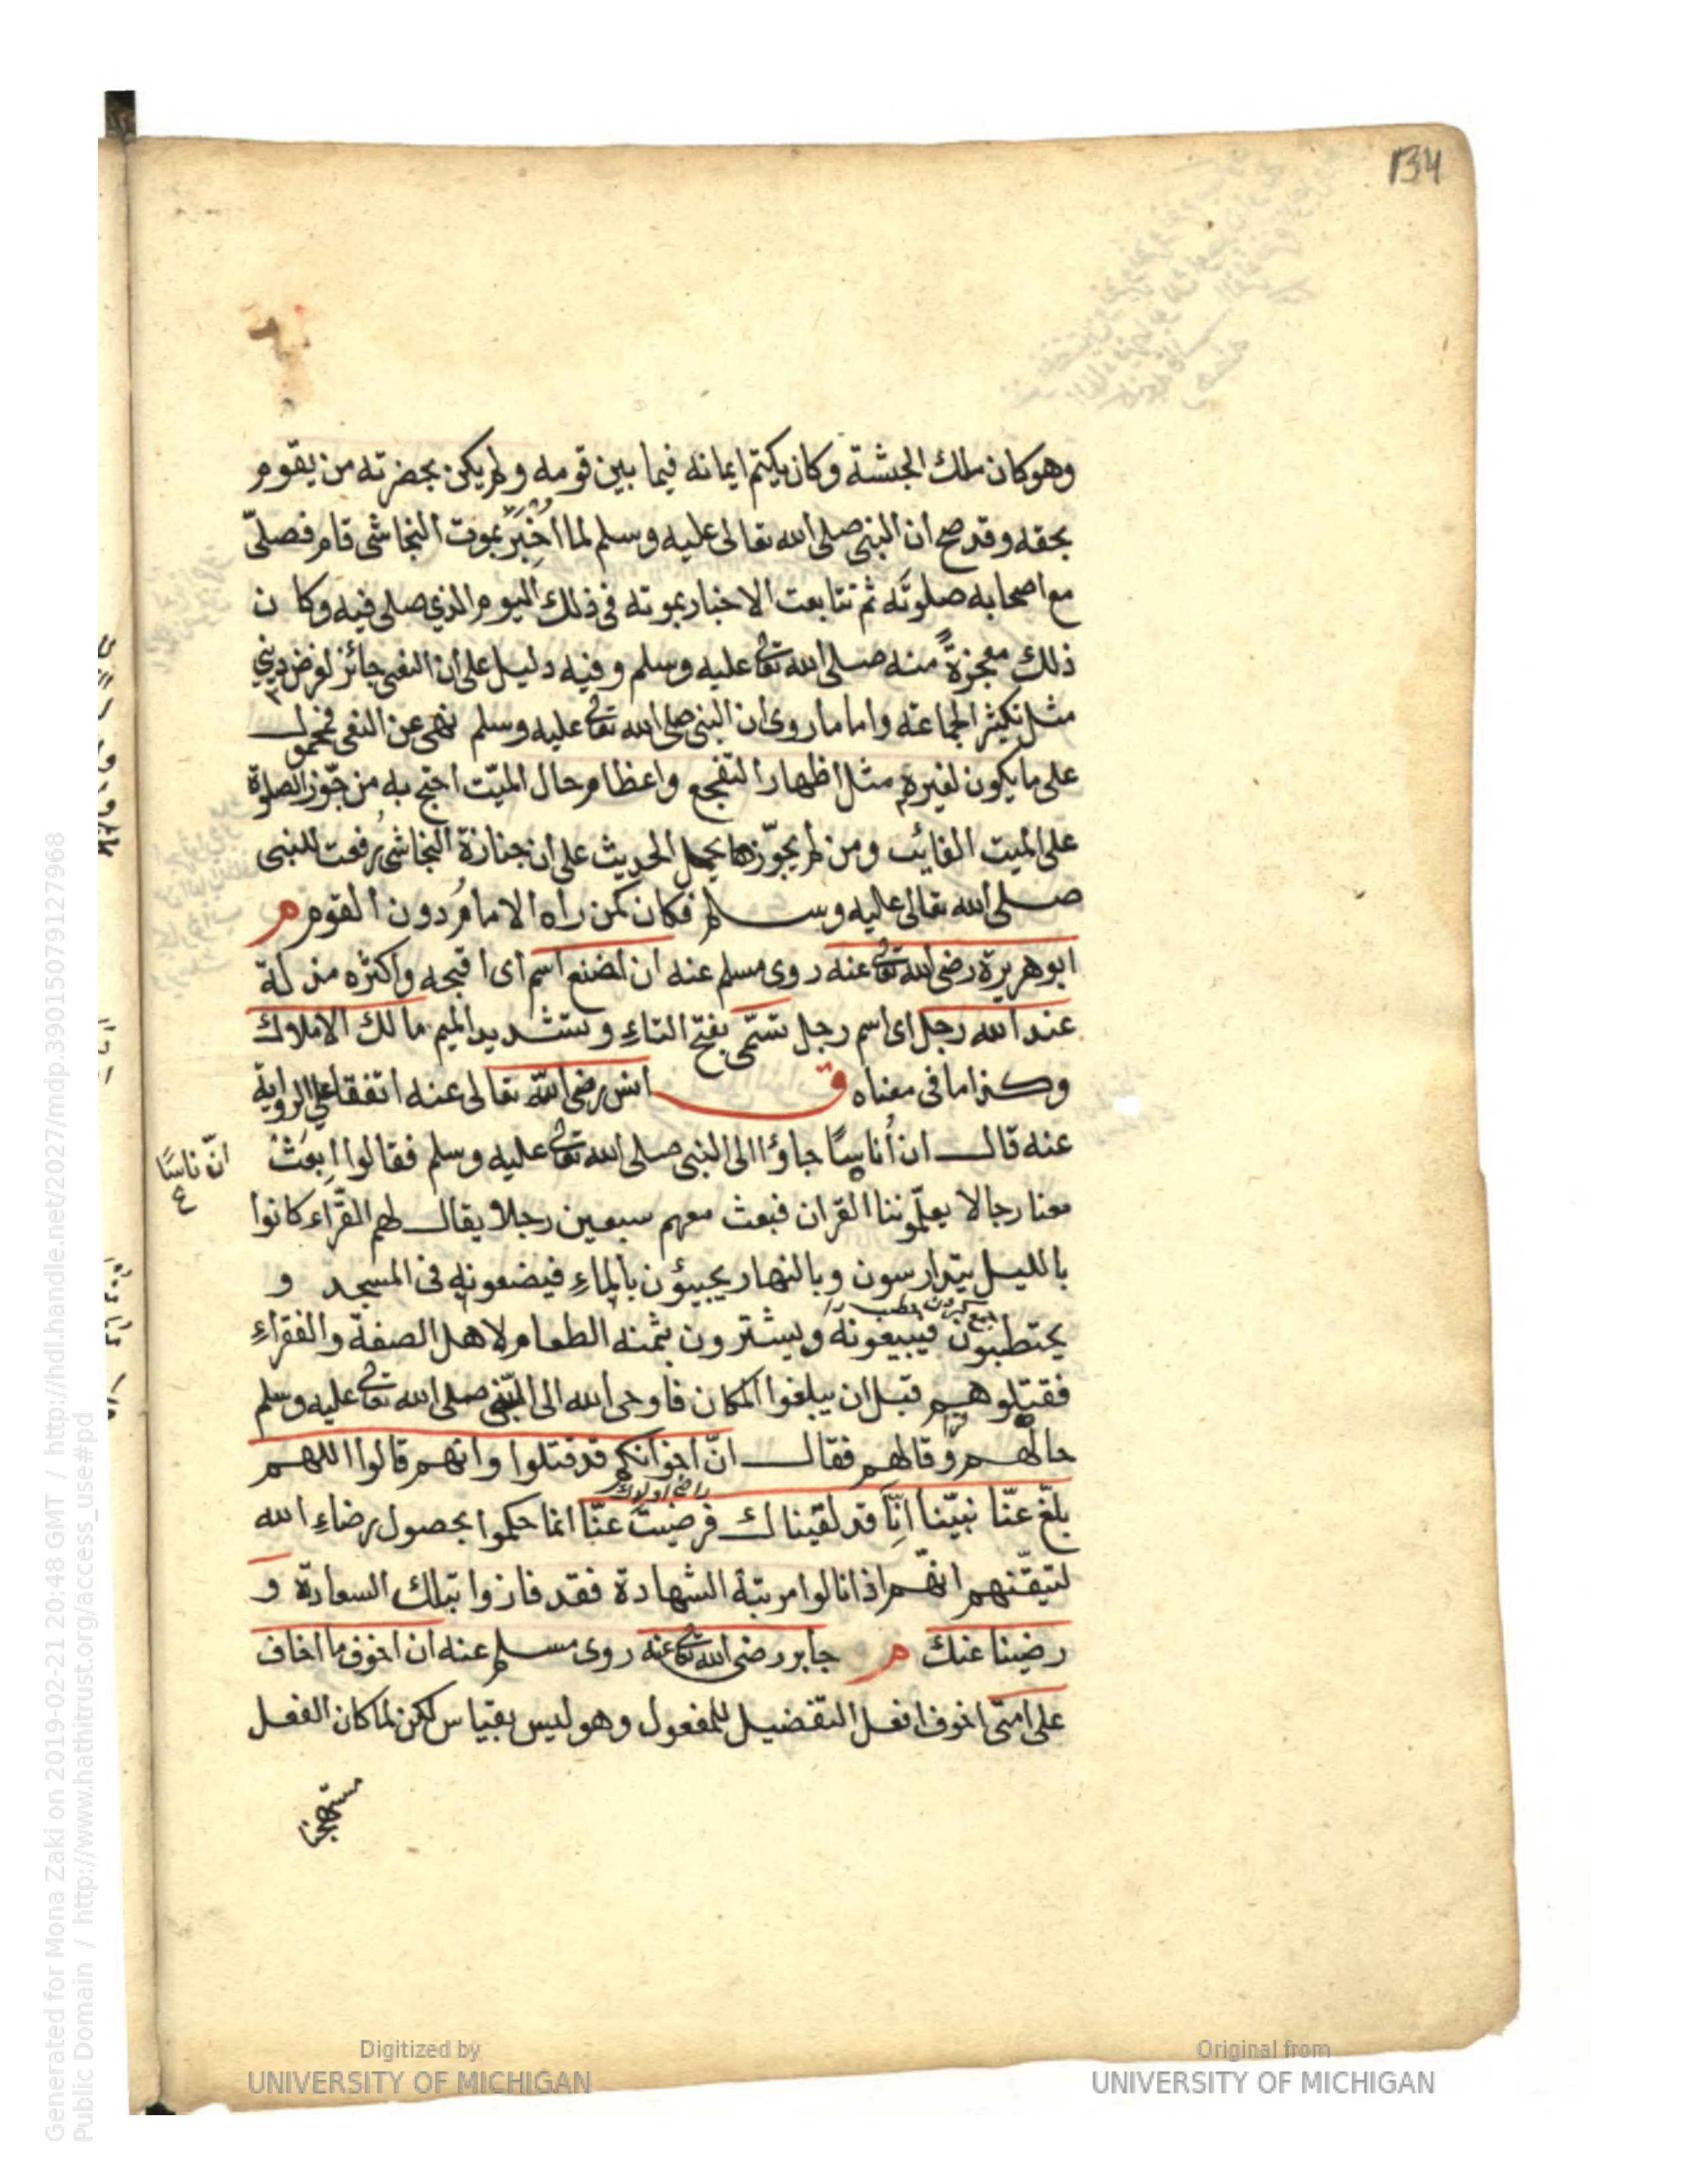 134
وهو كان ملك الحبشة وكان يكتم ايمانه فيما بين قومه ولم يكن بحضرته من يقوم
بحقه وقد صح ان النبي صلى الله تعالى عليه وسلم لما اُخْبِرَ بموت النجاشى قام فصلّى
مع اصحابه صلوته ثم تتابعت الاخبار بموته فى ذلك اليوم الذي صلى فيه وكان
ذلك معجزةً منه صلى الله تعالى عليه وسلم وفيه دليل على ان النعى جائز لغرض ديني
مثل تكثير الجماعة واما ما روى ان النبي صلى الله تعالى عليه وسلم نهى عن النعى فمحمول
على ما يكون لغيره مثل اظهار التفجع واعظام حال الميّت احتج به من جوّز الصلوة
على الميت الغائب ومن لم يجوّزها يحمل الحديث على ان جنازة النجاشى رفعت للنبى
صلى الله تعالى عليه وسلم فكان كمن راه الامام دون القوم م
ابو هريرة رضى الله تعالى عنه روى مسلم عنه ان اخنع اسم اى اقبحه واكثره مذلة
عند الله رجل اى اسم رجل تسمّى بفتح التاء وتشديد الميم مالك الاملاك
وكذا ما فى معناه ق انس رضى الله تعالى عنه اتفقا على الرواية
عنه قال ان اُناسًا جاؤا الى النبى صلى الله تعالى عليه وسلم فقالوا اِبعَثْ
انّ ناسًا
معنا رجالا يعلّموننا القران فبعث معهم سبعين رجلا يقال لهم القرّاء كانوا
بالليل يتدارسون وبالنهار يجيئون بالماء فيضعونه فى المسجد و
يحتطبون فيبيعونه ويشترون بثمنه الطعام لاهل الصفة والفقراء
فقتلوهم قبل ان يبلغوا المكان فاوحى الله الى النبي صلى الله تعالى عليه وسلم
حالهم وقالهم فقال انّ اخوانكم قد قتلوا وانهم قالوا اللهم
بلّغ عنّا نبيّنا انّا قد لقيناك فرضيت عنّا انما حكموا بحصول رضاء الله
لتيقّنهم انهم اذا نالوا مرتبة الشهادة فقد فازوا بتلك السعادة و
رضينا عنك م جابر رضى الله تعالى عنه روى مسلم عنه ان اخوف ما اخاف
على امتى اخوف افعل التفضيل للمفعول وهو ليس بقياس لكن لما كان الفعل
Digitized by
UNIVERSITY OF MICHIGAN
Original from
UNIVERSITY OF MICHIGAN
Generated for Mona Zaki on 2019-02-21 20:48 GMT / http://hdl.handle.net/2027/mdp.39015079127968
Public Domain / http://www.hathitrust.org/access_use#pd